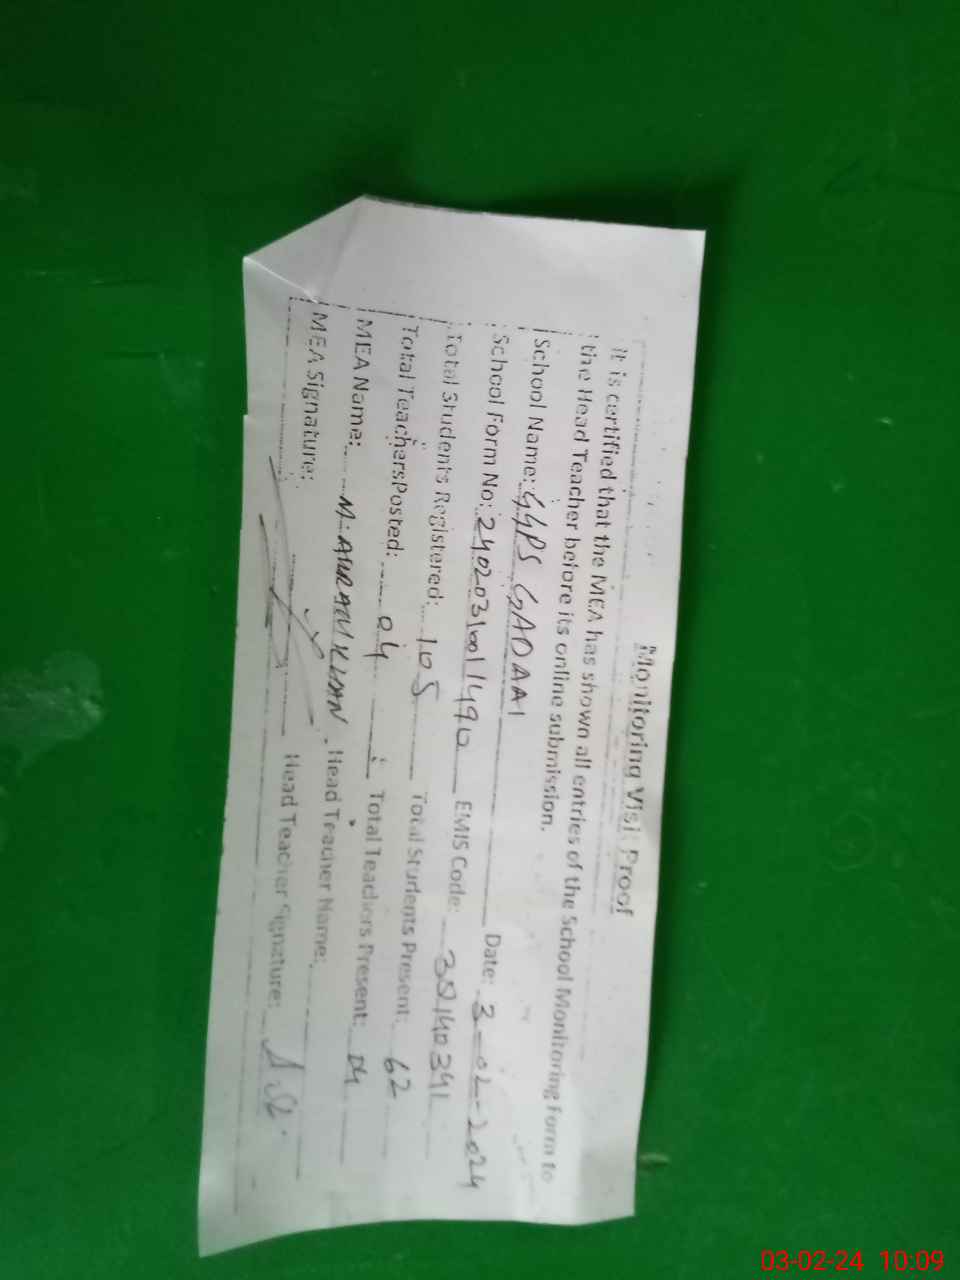 Monitoring Visit Proof
It is certified that the MEA has shown all entries of the School Monitoring Form to
the Head Teacher before its online submission.
School Name: GGPS GADAAI
School Form No: 2402031001490 Date: 3-02-2024
Total Students Registered: 105 EMIS Code: 38140341
Total Teachers Posted: 04 Total Students Present: 62
MEA Name: M. KHAN Total Teachers Present: 04
MEA Signature: Head Teacher Name:
Head Teacher Signature:
03-02-24 10:09